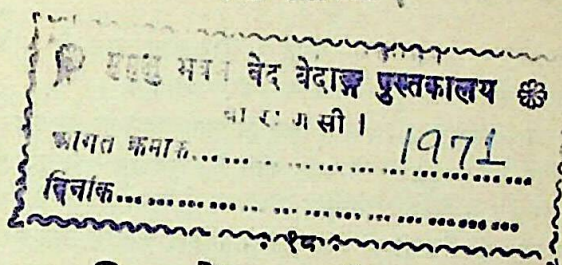 ❀ मुमुक्षु भवन वेद वेदाङ्ग पुस्तकालय ❀
वा रा ण सी ।
आगत क्रमाक............ 1971
दिनांक............